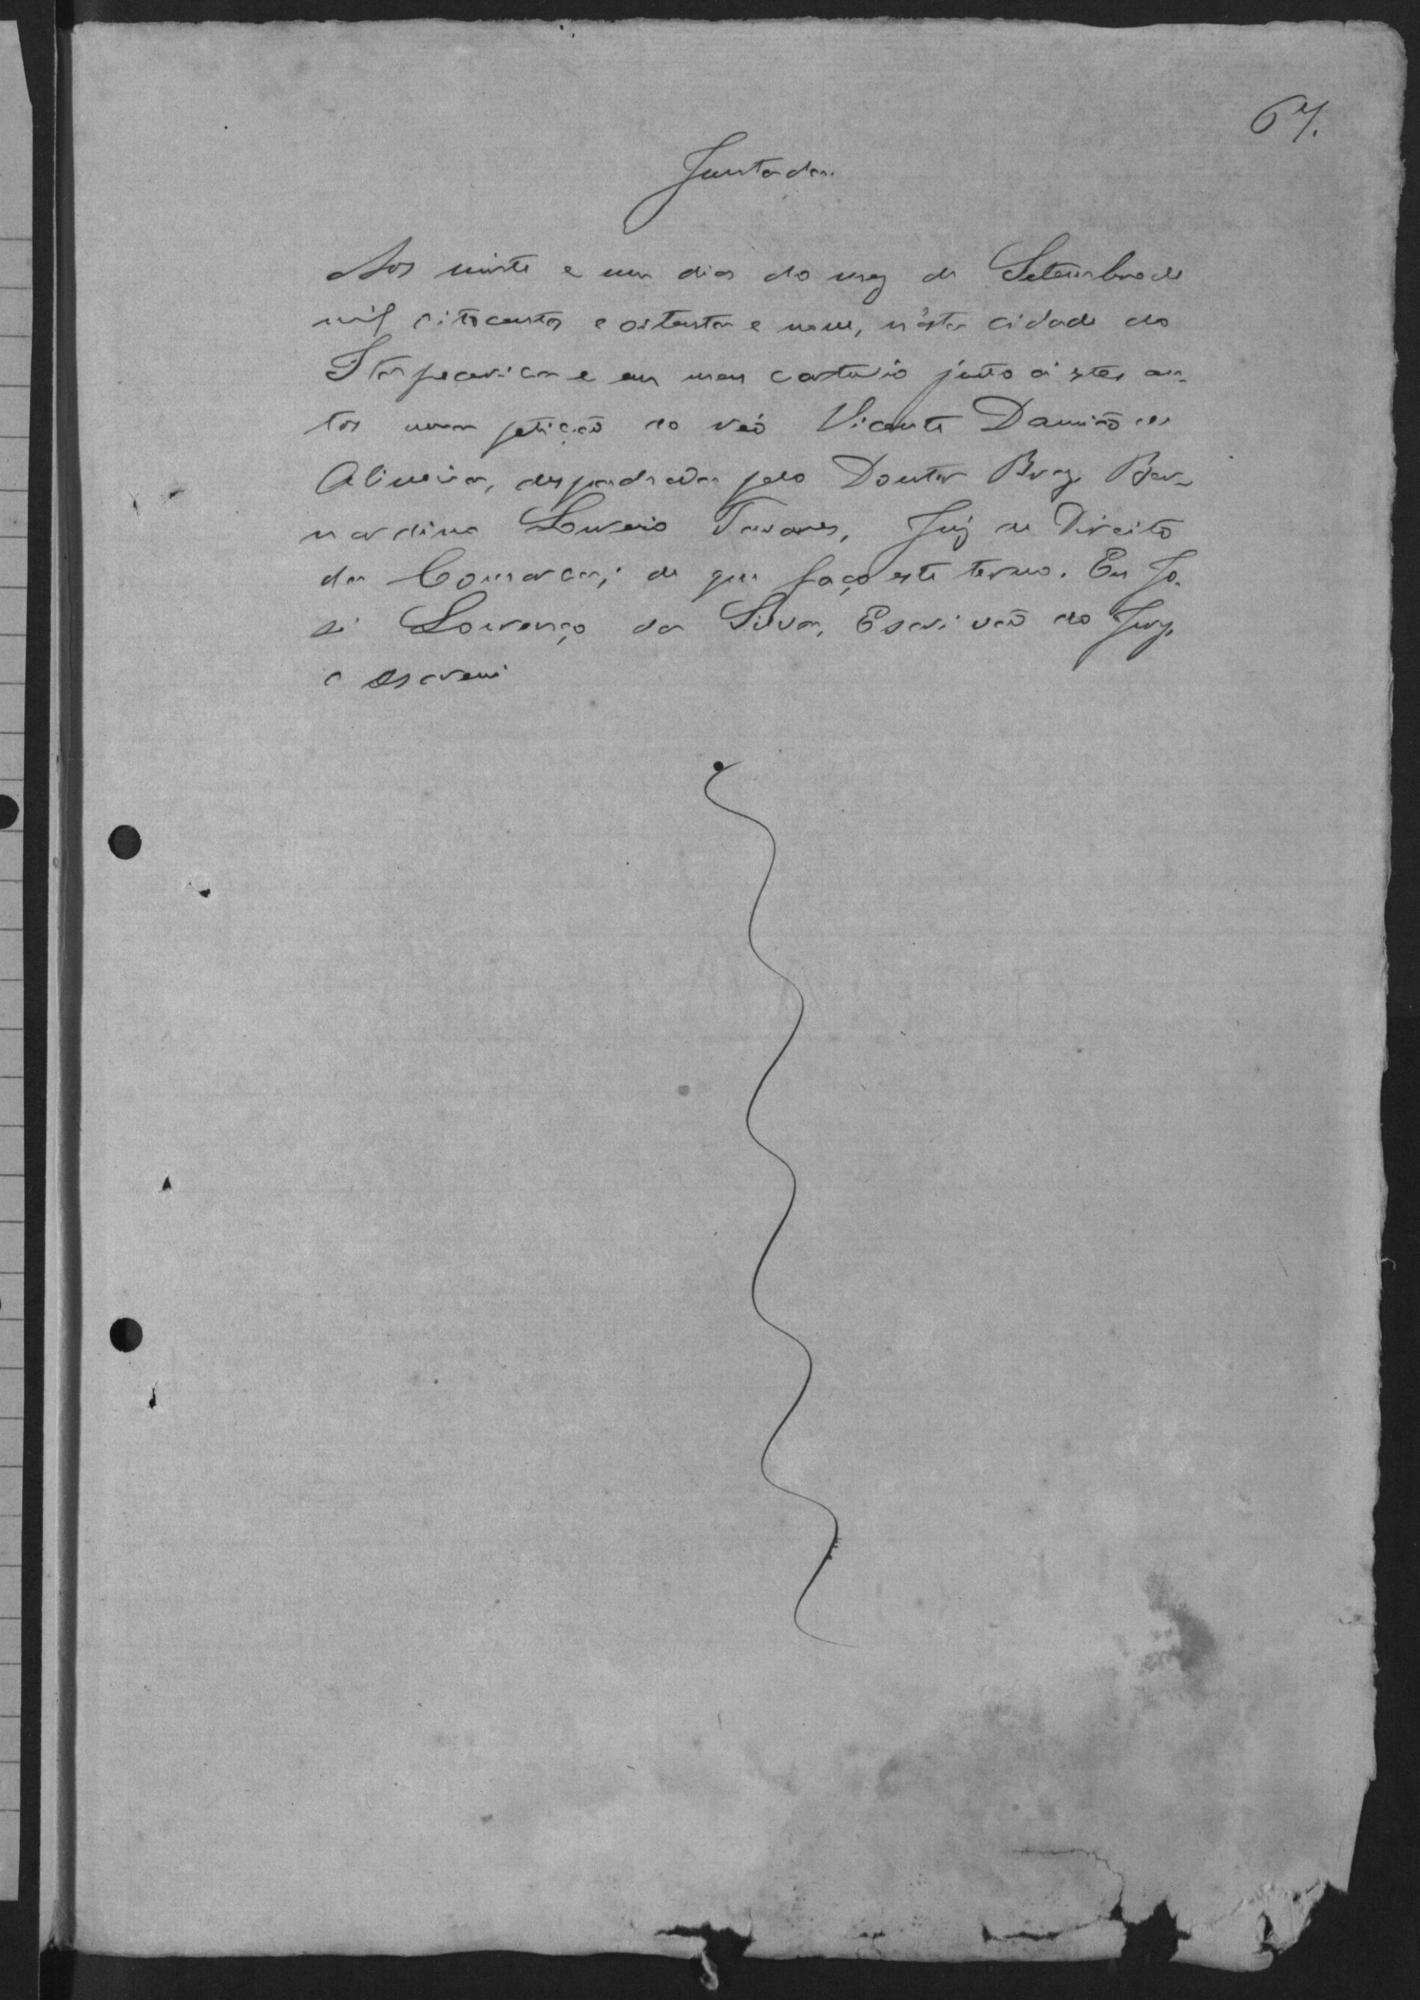 67.
Juntada.
Aos vinte e um dias do mez de Setembro de
mil oitocentos e oitenta e nove, n'esta cidade do
Itapecerica e em meu cartorio junto á estes au-
tos uma petição do réo Vicente Damião de
Oliveira, despachada pelo Doutor Braz Ber-
nardino Loureiro Tavares, Juiz de Direito
da Comarca; de que faço este termo. Eu Jo-
sé Lourenço da Silva, Escrivão do Jury,
o escrevi